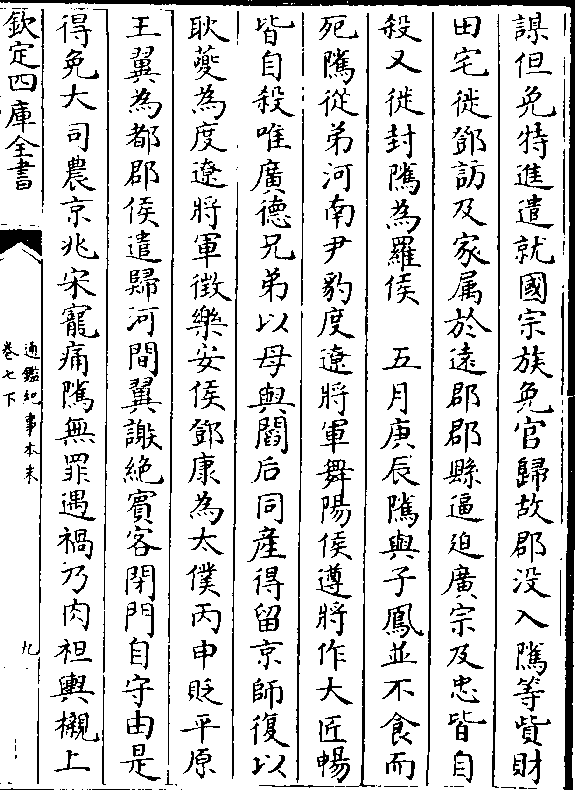 謀但免特進遣就國宗族免官歸故郡没入隲等貲財
田宅徙鄧訪及家属於遠郡郡縣逼迫廣宗及忠皆自
殺又徙封隲為羅侯　五月庚辰隲與子鳳並不食而
死隲從弟河南尹豹度遼將軍舞陽侯遵將作大匠暢
皆自殺唯廣德兄弟以母與閻后同産得留京師復以
耿夔為度遼將軍徴樂安侯鄧康為太僕丙申貶平原
王翼為都郷侯遣歸河間翼謝絶賓客閉門自守由是
得免大司農京兆朱寵痛隲無罪遇禍乃肉袒輿櫬上
欽定四庫全書
通鑑紀事本末
卷七下
九